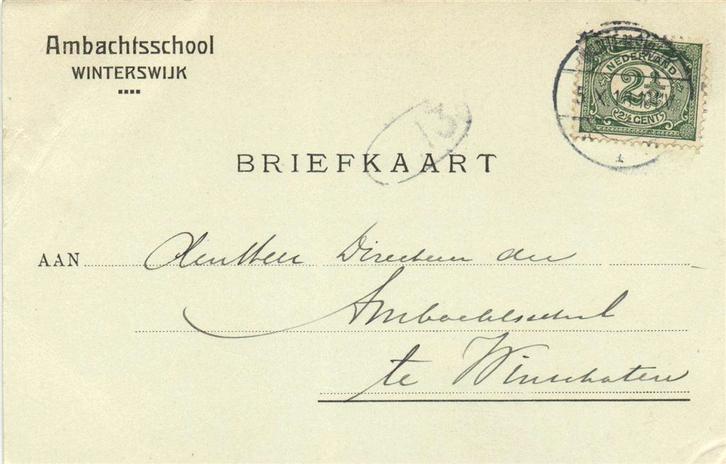 Ambachtsschool
WINTERSWIJK
NEDERLAND
2½
2½ CENT
73
BRIEFKAART
AAN den Heer Directeur der
Ambachtsschool
te Winschoten